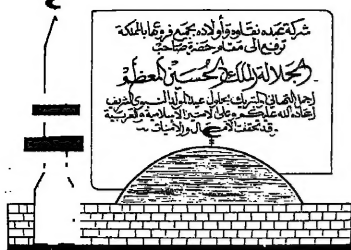 شركة عبده نقاوة وأولاده بجميع فروعها بالمملكة
ترفع إلى مقام حضرة صاحب
الجلالة الملك الحسين المعظم
أجمل التهاني والتبريك بحلول عيد المولد النبوي الشريف
أعاده الله عليكم وعلى الأمتين الإسلامية والعربية
وقد تحققت الآمال والأمنيات